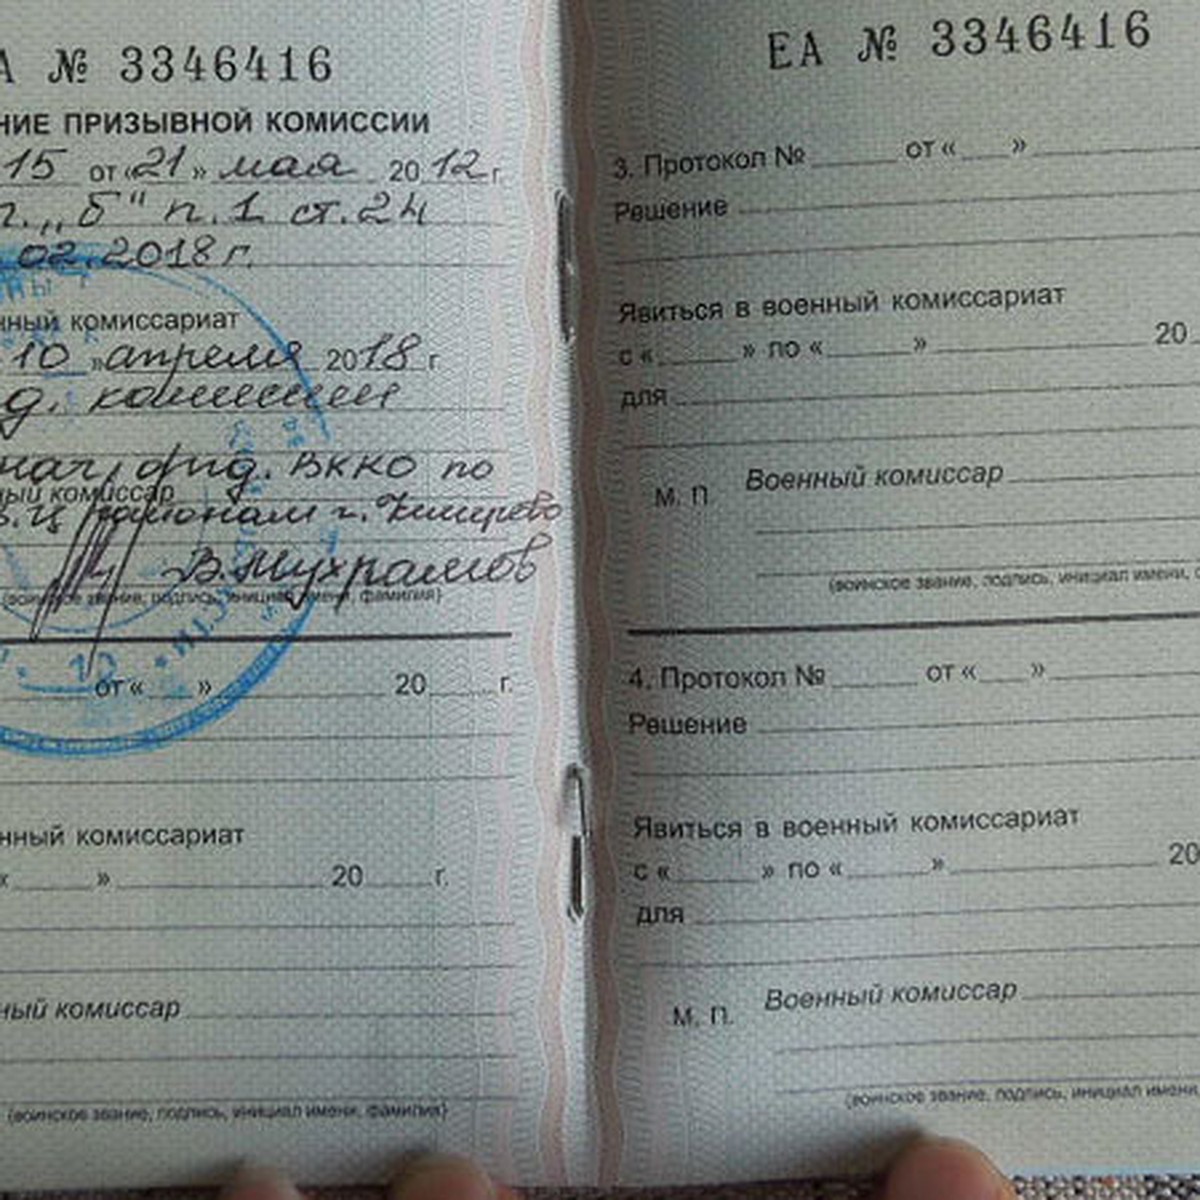 А № 3346416
НИЕ ПРИЗЫВНОЙ КОМИССИИ
15 от «21» мая 2012 г.
п. „б" п. 1 ст. 24
02.2018 г.
нный комиссариат
10 » апреля 2018 г
д. комиссии
нач. отд. ВККО по
ный комиссар
районам г. Кемерово
(воинское звание, подпись, инициал имени, фамилия)
от « » 20 г.
нный комиссариат
« » 20 г.
ный комиссар
(воинское звание, подпись, инициал имени, фамилия)
ЕА № 3346416
3. Протокол № от « »
Решение
Явиться в военный комиссариат
с « » по « » 20
для
М. П. Военный комиссар
(воинское звание, подпись, инициал имени,
4. Протокол № от « »
Решение
Явиться в военный комиссариат
с « » по « » 20
для
М. П. Военный комиссар
(воинское звание, подпись, инициал имени